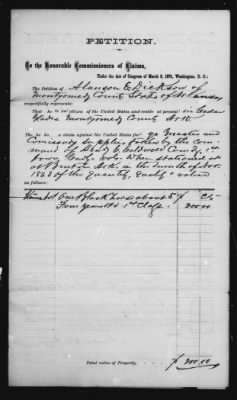 PETITION.
To the Honorable Commissioners of Claims,
Under the Act of Congress of March 3, 1871, Washington, D. C.:
The Petition of Alanson E Dickson of
Montgomery County State of Arkansas
respectfully represents:
That he is a citizen of the United States, and resides at present in Cedar
Glades Montgomery County Ark
That he has a claim against the United States for Qr Master and
Comissady Supplies taken by the Com-
mand of Caldwell Comdg 1st
Iowa Cavly vols. When stationed at
at Benton Ark in the month of
1863 of the quantity, quality & value
as follows:
One Black horse about
Four years old 1st Class 200.00
Total value of Property, $ 200.00